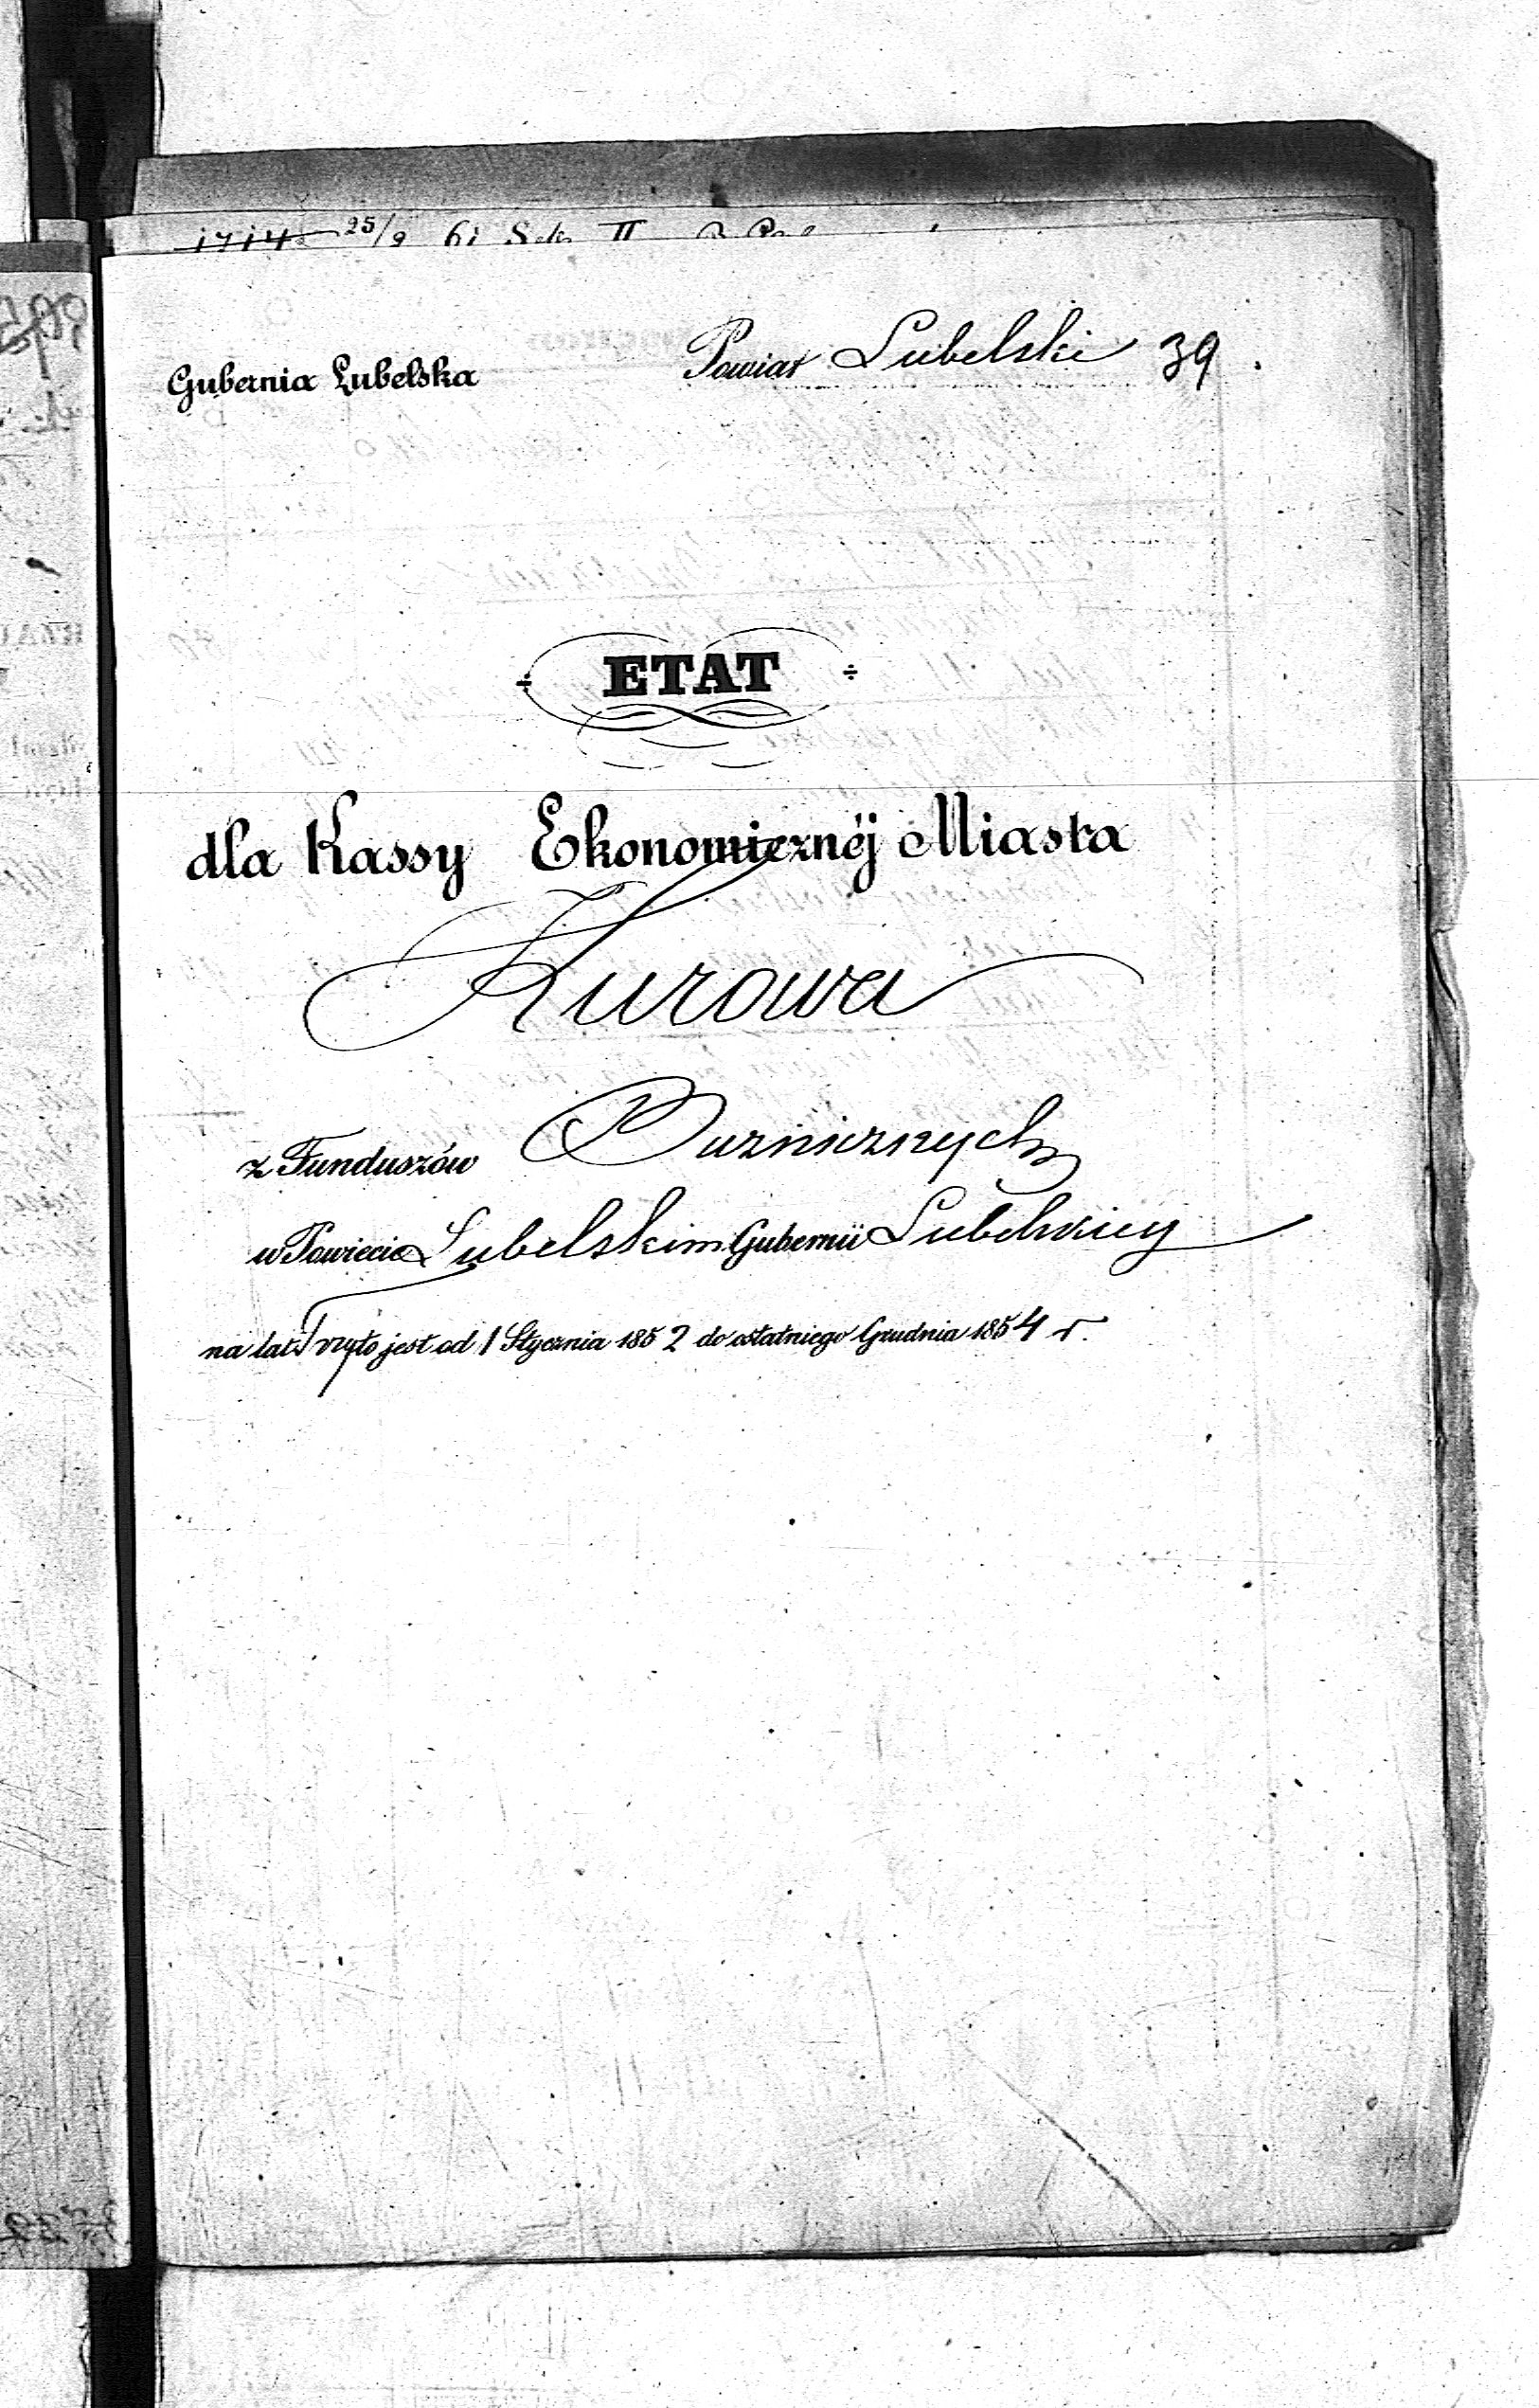 1714 25/9 61 Sek II
Gubernia Lubelska Powiat Lubelski 39
ETAT
dla Kassy Ekonomicznéj Miasta
Kurowa
z Funduszów Buznicznych
w Powiecie Lubelskim Gubernii Lubelskiey
na lat Trzy to jest od 1 Stycznia 1852 do ostatniego Grudnia 1854 r.